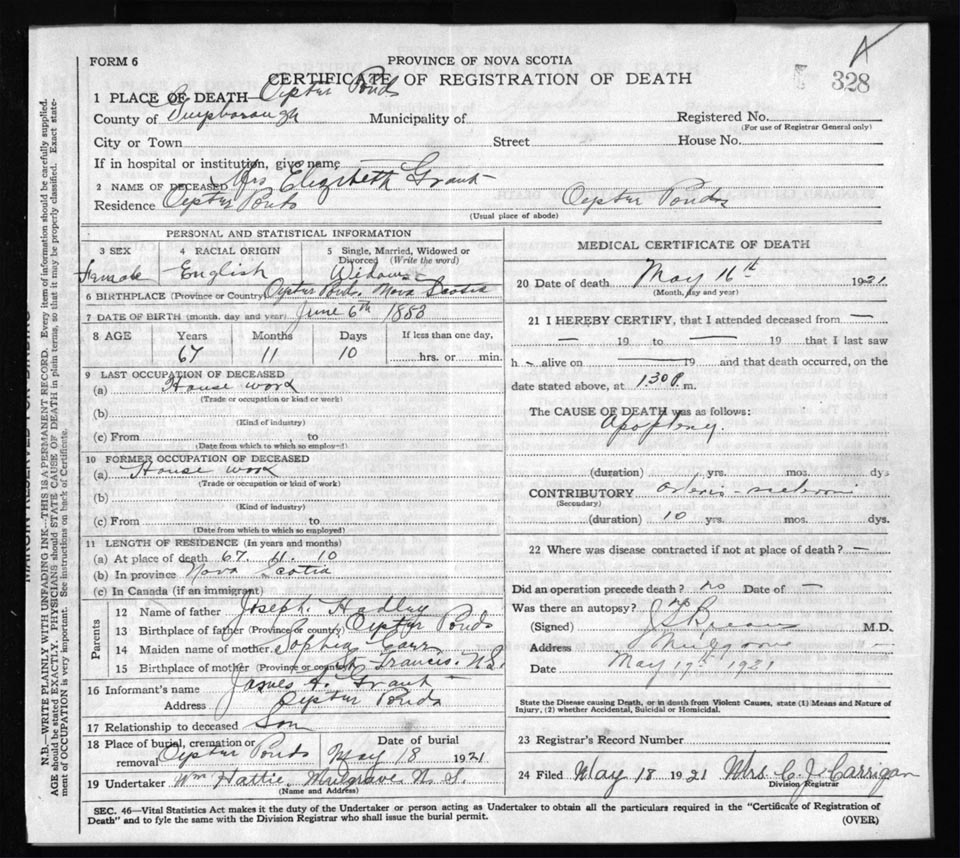 FORM 6
PROVINCE OF NOVA SCOTIA
CERTIFICATE OF REGISTRATION OF DEATH
328
1 PLACE OF DEATH— Oyster Ponds
County of Guysborough Municipality of Registered No.
(For use of Registrar General only)
City or Town Street House No.
If in hospital or institution, give name
2 NAME OF DECEASED Mrs Elizabeth Grant
Residence Oyster Ponds Oyster Ponds
(Usual place of abode)
PERSONAL AND STATISTICAL INFORMATION
3 SEX 4 RACIAL ORIGIN 5 Single, Married, Widowed or
Divorced (Write the word)
Female English Widow
6 BIRTHPLACE (Province or Country) Oyster Ponds, Nova Scotia
7 DATE OF BIRTH (month, day and year) June 6th 1853
8 AGE Years Months Days If less than one day,
67 11 10 hrs. or min.
9 LAST OCCUPATION OF DECEASED
(a) House work
(Trade or occupation or kind or work)
(b)
(Kind of industry)
(c) From to
(Date from which to which so employed)
10 FORMER OCCUPATION OF DECEASED
(a) House work
(Trade or occupation or kind of work)
(b)
(Kind of industry)
(c) From to
(Date from which to which so employed)
11 LENGTH OF RESIDENCE (In years and months)
(a) At place of death 67. 11. 10
(b) In province Nova Scotia
(c) In Canada (if an immigrant)
Parents
12 Name of father Joseph Hadley
13 Birthplace of father (Province or country) Oyster Ponds
14 Maiden name of mother Sophia Carr
15 Birthplace of mother (Province or country) St Francis. N.S.
16 Informant's name James A. Grant
Address Oyster Ponds
17 Relationship to deceased Son
18 Place of burial, cremation or removal Oyster Ponds Date of burial May 18 1921
19 Undertaker Wm Hattie, Mulgrave N. S.
(Name and Address)
MEDICAL CERTIFICATE OF DEATH
20 Date of death May 16th 1921
(Month, day and year)
21 I HEREBY CERTIFY, that I attended deceased from —
— 19 to — 19 that I last saw
h – alive on — 19 and that death occurred, on the
date stated above, at 1.30 P. m.
The CAUSE OF DEATH was as follows:
Apoplexy.
(duration) yrs. mos. dys
CONTRIBUTORY
(Secondary)
(duration) 10 yrs. mos. dys.
22 Where was disease contracted if not at place of death? —
Did an operation precede death? no Date of —
Was there an autopsy? no
(Signed) M.D.
Address Mulgrave
Date May 17th 1921
State the Disease causing Death, or in death from Violent Causes, state (1) Means and Nature of
Injury, (2) whether Accidental, Suicidal or Homicidal.
23 Registrar's Record Number
24 Filed May 18 1921 Mrs. C. J. Carrigan
Division Registrar
SEC. 46—Vital Statistics Act makes it the duty of the Undertaker or person acting as Undertaker to obtain all the particulars required in the "Certificate of Registration of
Death" and to fyle the same with the Division Registrar who shall issue the burial permit.
(OVER)
MARGIN RESERVED FOR BINDING
N.B.—WRITE PLAINLY WITH UNFADING INK—THIS IS A PERMANENT RECORD. Every item of information should be carefully supplied.
AGE should be stated EXACTLY. PHYSICIANS should STATE CAUSE OF DEATH in plain terms, so that it may be properly classified. Exact state-
ment of OCCUPATION is very important. See instructions on back of Certificate.